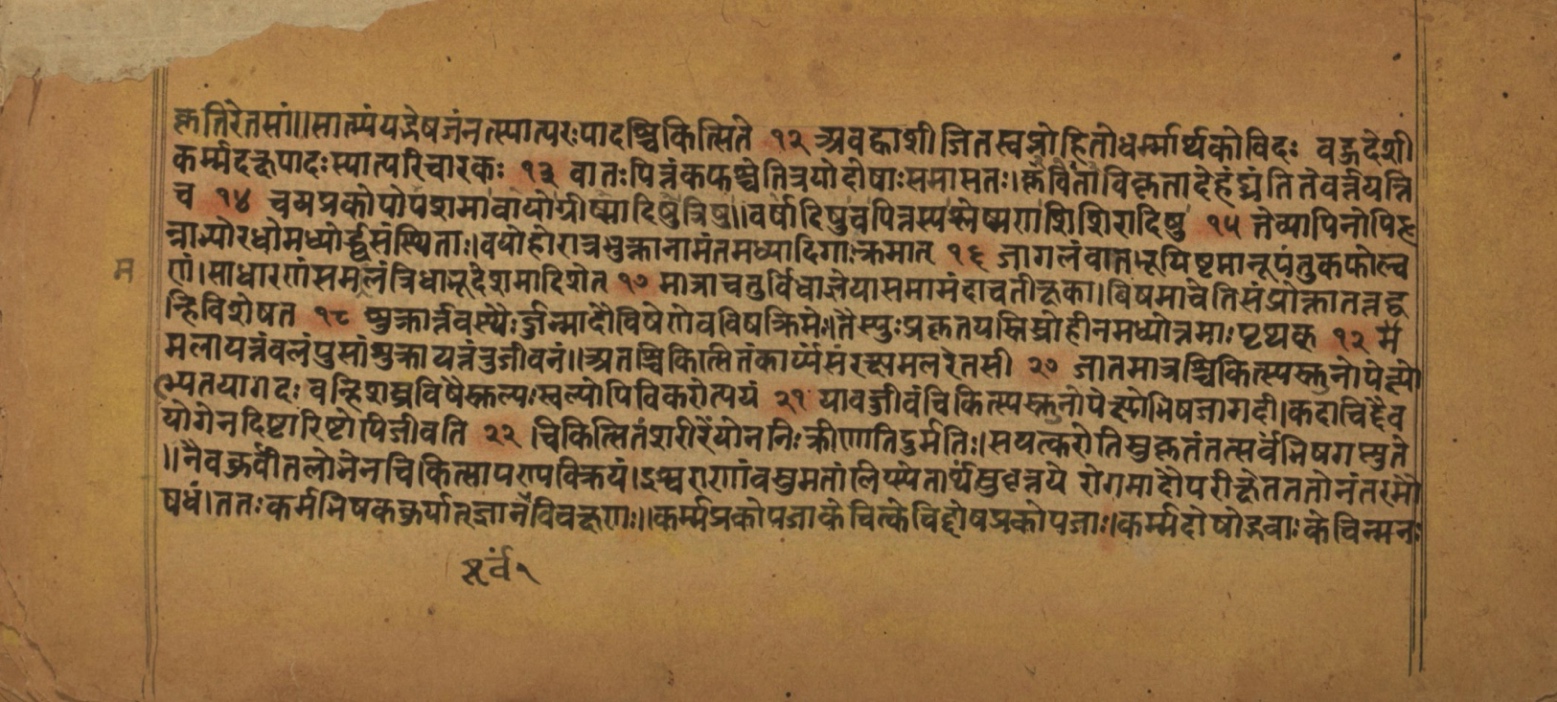 कृतिरेतसां॥सात्म्यंयद्भेषजंनत्स्यात्परःपादश्चिकित्सिते १२ अवह्वाशीजितस्वप्नोहितोधर्म्मार्थकोविदः वद्धदेशी
कर्म्मदक्षपादःस्यात्परिचारकः १३ वातःपित्तंकफश्चेतित्रयोदोषाःसमासतः।कृवैतांविकृतादेहंघ्नंतितेवर्त्तयन्ति
च १४ चयप्रकोपोपशमावायोग्रीष्मादिषुत्रिषु॥वर्षादिषुचपित्तस्यश्लेष्मणःशिशिरादिषु १५ तेव्यापिनोपिहृ
न्नाभ्योरधोमध्योर्द्धसंस्थिताः।वयोहोरात्रभुक्तानामंतमध्यादिगाःक्रमात् १६ जागलंवातभूयिष्टमानूपंतुकफोल्व
णं।साधारणंसमलंत्रिधाभूदेशमादिशेत १७ मात्राचतुर्विधाज्ञेयासमामंदाचतीक्ष्णका।विषमाचेतिसंप्रोक्तातत्रद्व
न्हिविशेषत १८
मलायत्तंवलंपुसांशुक्रायत्तंतुजीवनं॥अतश्चिकित्सितंकार्य्यंसंरक्ष्यमलरेतसी २० जातमात्रश्चिकित्स्यस्तुनोपेक्ष्यो
ल्पतयागदः वन्हिशस्त्रविषैस्तुल्यःस्वल्पोपिविकरोत्ययं २१ यावज्जीवंचिकित्स्यस्तुनोपेक्ष्योभिषजागदी।कदाचिद्दैव
योगेनदिष्टारिष्टोपिजीवति २२ चिकित्सितंशरीरंयोननिःक्रीणातिदुर्मतिः।सयत्करोतिसुकृतंतत्सर्वंभिषगश्नुते
॥नैवकुर्वीतलोभेनचिकित्सापण्यविक्रयं।इश्वराणांवसुमतांलिप्स्येतार्थंसुवृत्तये रोगमादौपरीक्षेतततोनंतरमौ
षधं।ततःकर्मभिषककुर्यातज्ञानंविचक्षणः॥कर्म्मप्रकोपजाकेचित्केचिद्दोषप्रकोपजाः।कर्म्मदोषोद्भवाःकेचिन्मनः